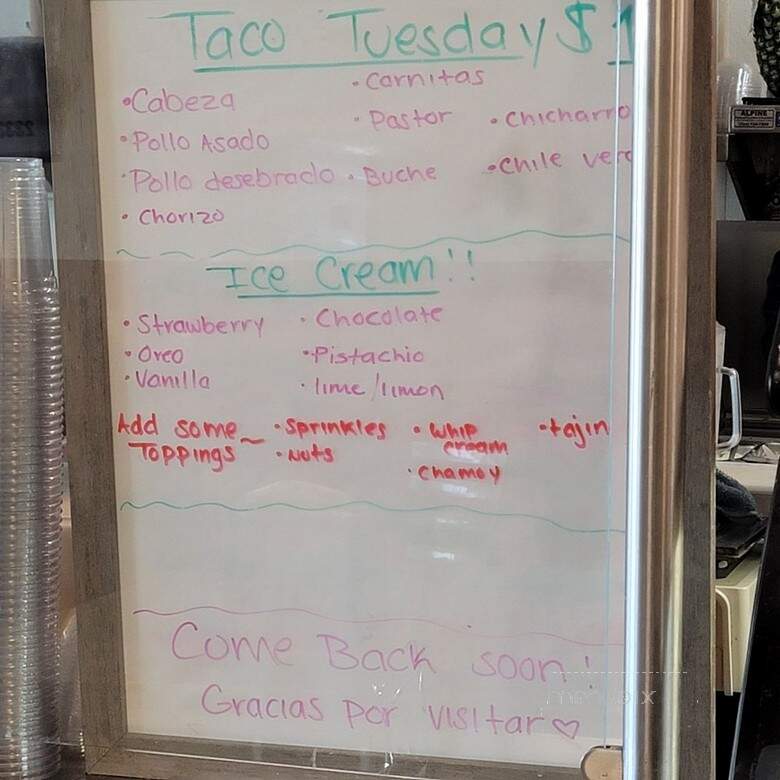 Taco Tuesday $1
• Cabeza
• Pollo Asado
• Pollo desebrado
• Chorizo
• Carnitas
• Pastor
• Buche
• Chicharro
• Chile verd
Ice Cream!!
• Strawberry
• Oreo
• Vanilla
• Chocolate
• Pistachio
• lime/limon
Add some ~
Toppings
• Sprinkles
• Nuts
• Whip
cream
• Chamoy
• tajin
Come Back soon!
Gracias por visitar ♡
ALPINE